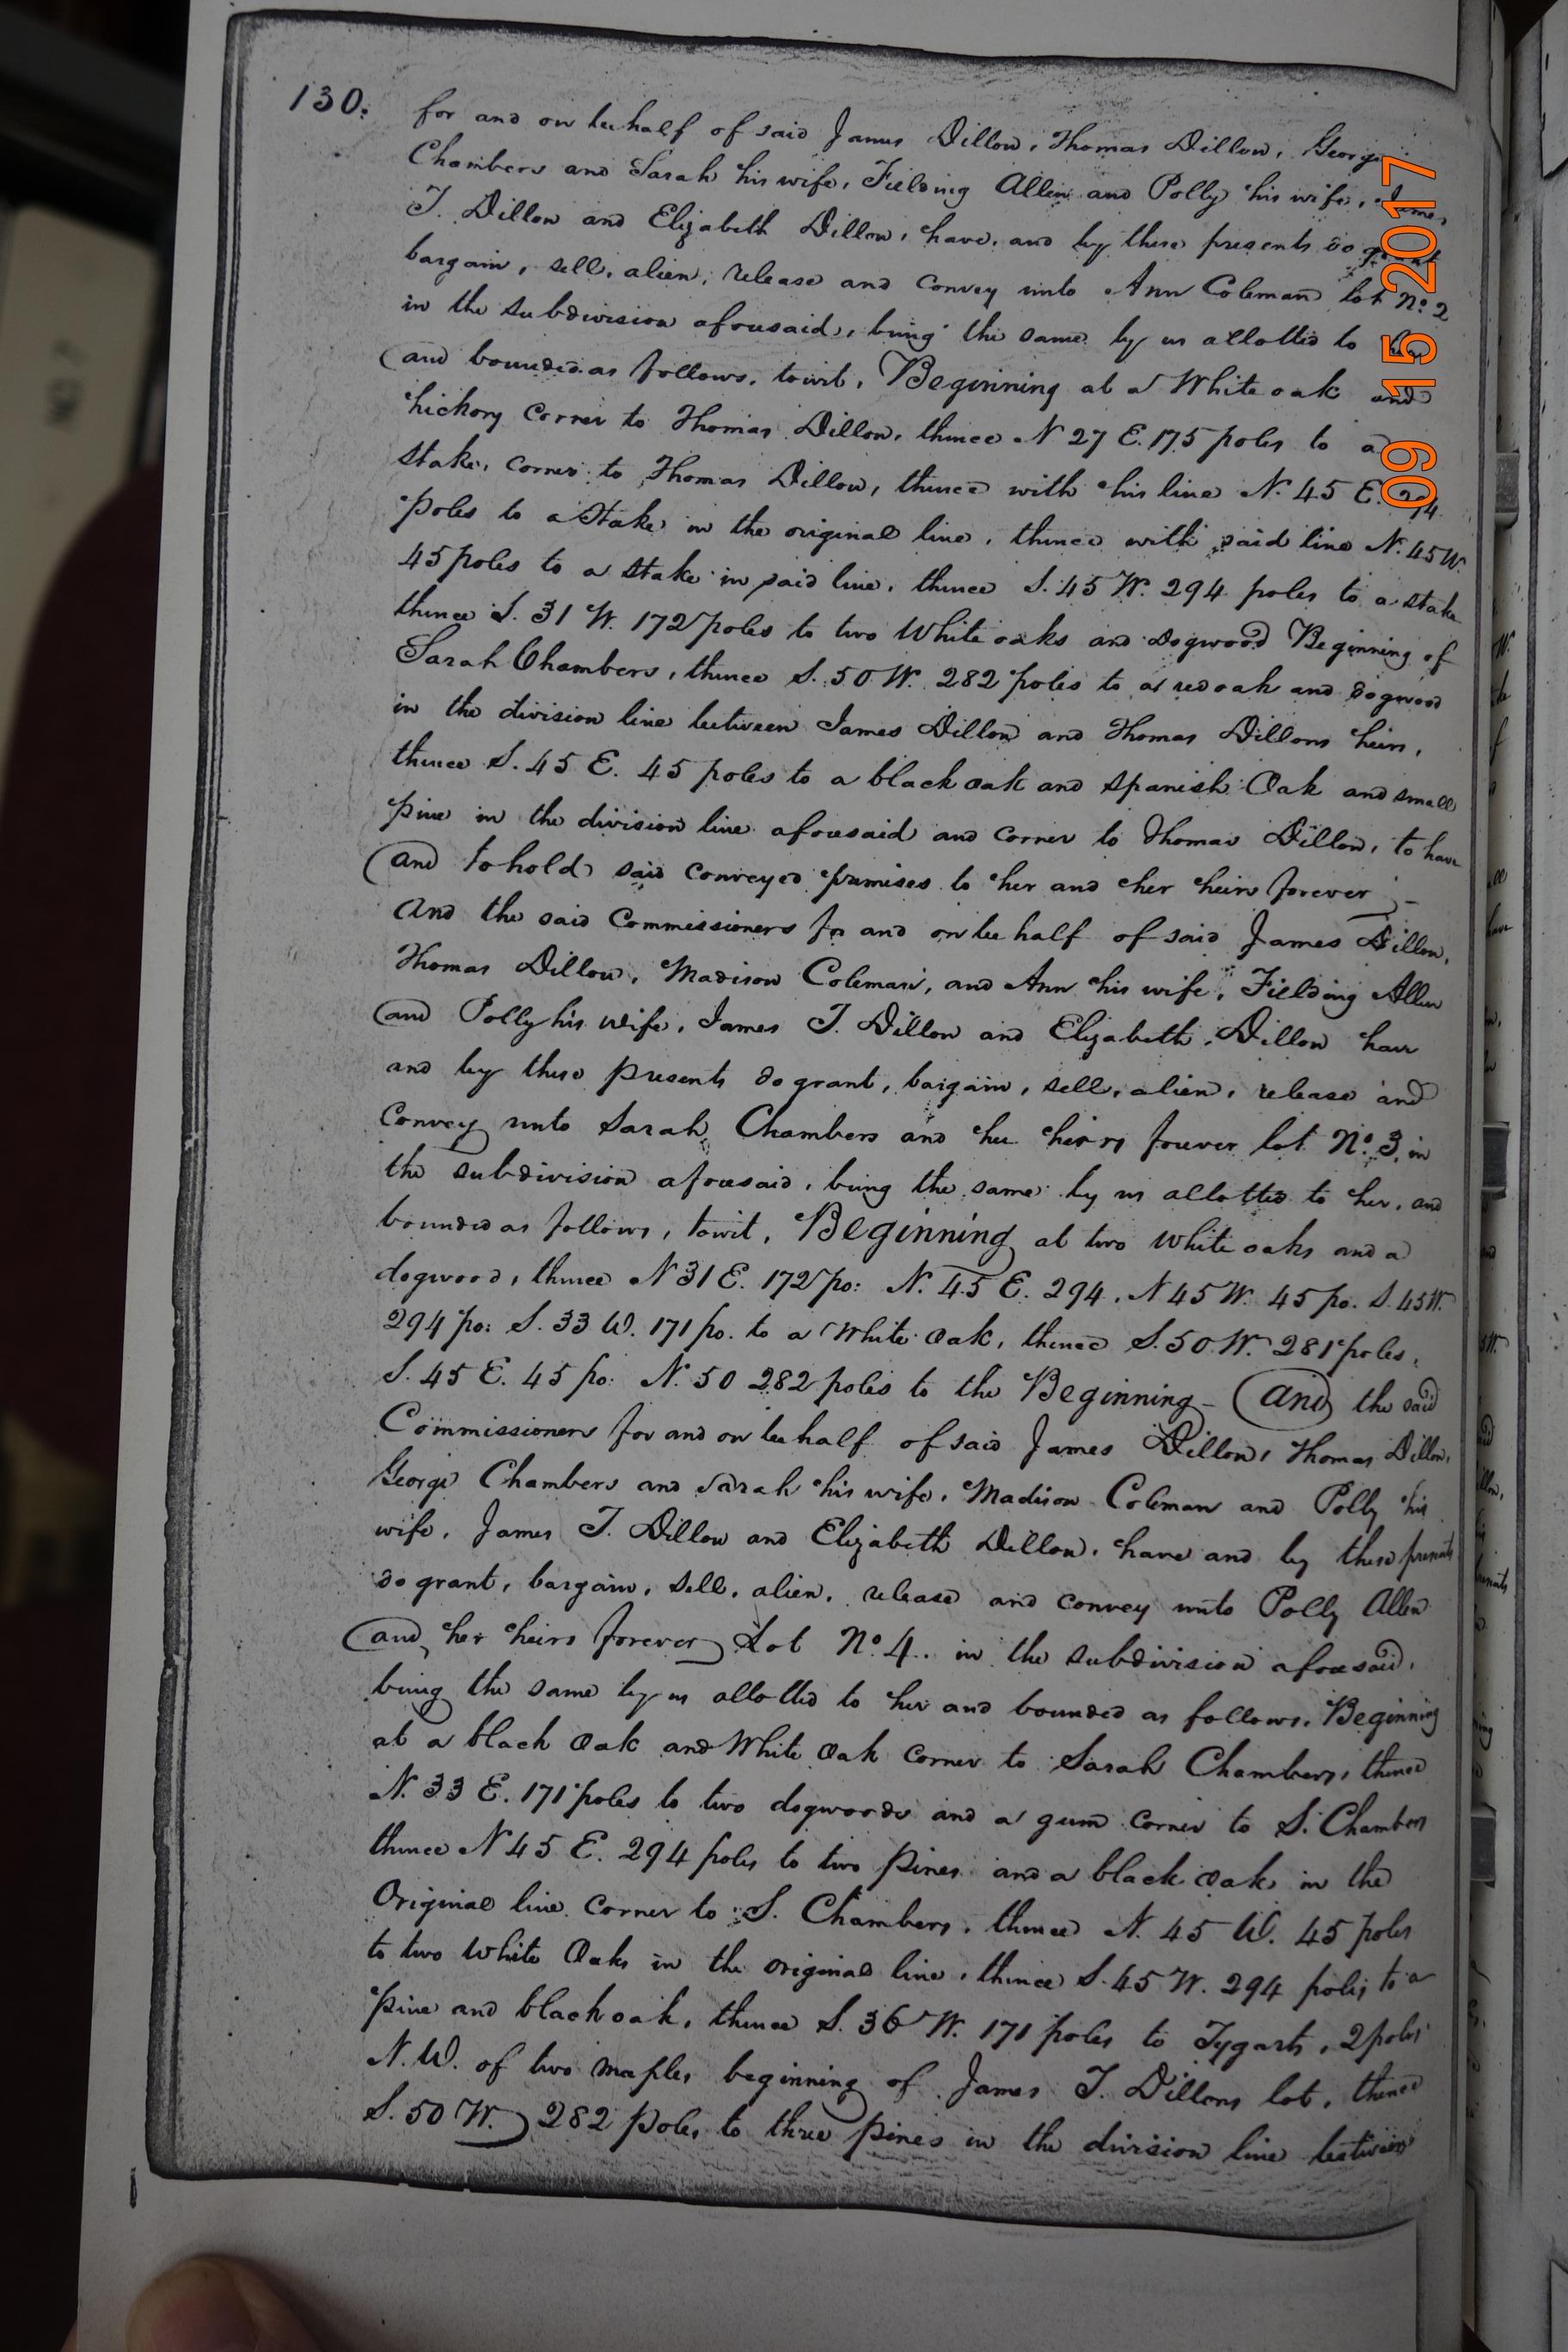 130. for and on behalf of said James Dillon, Thomas Dillon, George
Chambers and Sarah his wife, Fielding Allen and Polly his wife, James
T. Dillon and Elizabeth Dillon, have, and by these presents do grant
bargain, sell, alien, release and convey unto Ann Coleman lot No. 2
in the subdivision aforesaid, being the same by us allotted to her
and bounded as follows, towit, Beginning at a White oak and
hickory corner to Thomas Dillon, thence N 27 E. 175 poles to a
stake, corner to Thomas Dillon, thence with his line N. 45 E. 294
poles to a Stake in the original line, thence with said line N. 45 W.
45 poles to a stake in said line, thence S. 45 W. 294 poles to a stake
thence S. 31 W. 172 poles to two White oaks and dogwood Beginning of
Sarah Chambers, thence S. 50 W. 282 poles to a red oak and dogwood
in the division line between James Dillon and Thomas Dillons heirs,
thence S. 45 E. 45 poles to a black oak and spanish Oak and small
pine in the division line aforesaid and corner to Thomas Dillon, to have
and to hold said conveyed premises to her and her heirs forever -
And the said Commissioners for and on behalf of said James Dillon,
Thomas Dillon, Madison Coleman, and Ann his wife, Fielding Allen
and Polly his wife, James T. Dillon and Elizabeth Dillon have
and by these presents do grant, bargain, sell, alien, release and
convey unto Sarah Chambers and her heirs forever lot No. 3, in
the subdivision aforesaid, being the same by us allotted to her, and
bounded as follows, towit, Beginning at two White oaks and a
dogwood, thence N 31 E. 172 po: N. 45 E. 294. N 45 W. 45 po. S. 45 W.
294 po: S. 33 W. 171 po. to a White Oak, thence S. 50 W. 281 poles,
S. 45 E. 45 po: N. 50 282 poles to the Beginning - And the said
Commissioners for and on behalf of said James Dillon, Thomas Dillon,
George Chambers and Sarah his wife, Madison Coleman and Polly his
wife, James T. Dillon and Elizabeth Dillon, have and by these presents
do grant, bargain, sell, alien, release and convey unto Polly Allen
and her heirs forever Lot No. 4. in the subdivision aforesaid,
being the same by us allotted to her and bounded as follows, Beginning
at a black Oak and White Oak corner to Sarah Chambers, thence
N. 33 E. 171 poles to two dogwoods and a gum corner to S. Chambers
thence N 45 E. 294 poles to two Pines and a black Oak in the
Original line corner to S. Chambers, thence N. 45 W. 45 poles
to two White Oaks in the original line, thence S. 45 W. 294 poles to a
pine and black oak, thence S. 36 W. 171 poles to Tygarts, 2 poles
N. W. of two maples beginning of James T. Dillons lot, thence
S. 50 W. 282 poles to three pines in the division line between
09 15 2017